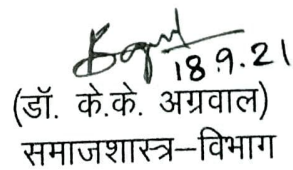 18.9.21
(डॉ. के.के. अग्रवाल)
समाजशास्त्र–विभाग